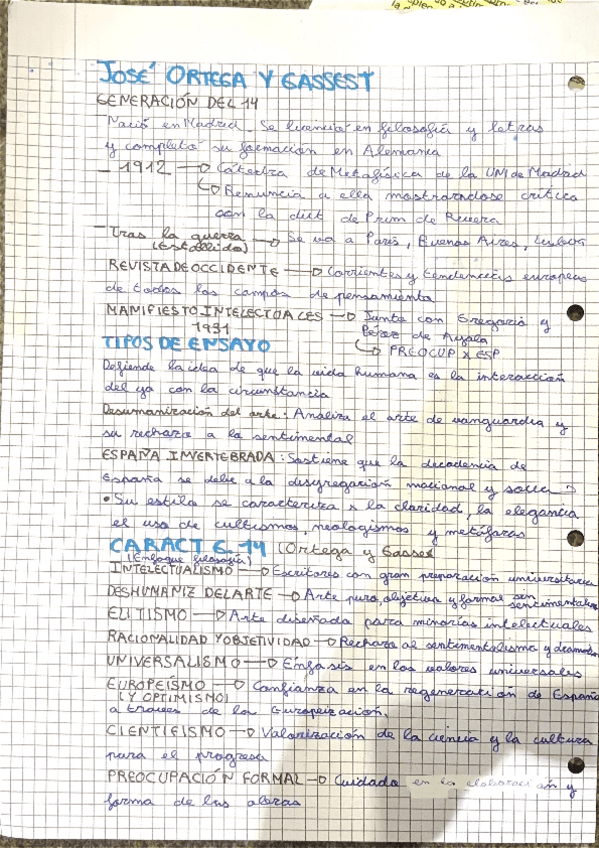 JOSÉ ORTEGA Y GASSEST
GENERACIÓN DEL 14
Nació en Madrid. Se licenció en filosofía y letras
y completó su formación en Alemania
- 1912 → Cátedra de Metafísica de la UNI de Madrid
↳ Renuncia a ella mostrandose crítico
con la dict de Prim de Rivera
- tras la guerra → Se va a París, Buenos Aires, Lisboa
(Estallido)
REVISTA DE OCCIDENTE → Corrientes y tendencias europeas
de todos los campos de pensamiento
MANIFIESTO INTELECTUALES → Junto con Gregorio y
1931 Pérez de Ayala
↳ PREOCUP X ESP
TIPOS DE ENSAYO
Defiende la idea de que la vida humana es la interacción
del yo con la circunstancia
Desumanización del arte: Analiza el arte de vanguardia y
su rechazo a lo sentimental
ESPAÑA INVERTEBRADA: Sostiene que la decadencia de
España se debe a la disgregación nacional y social
• Su estilo se caracteriza x la claridad, la elegancia
el uso de cultismos, neologismos y metáforas
CARACT G.14 (Ortega y Gasset
(Enfoque filosofía)
INTELECTUALISMO → Escritores con gran preparación universitaria
DESHUMANIZ DEL ARTE → Arte puro, objetivo y formal sin
sentimentalismo
ELITISMO → Arte diseñado para minorías intelectuales
RACIONALIDAD Y OBJETIVIDAD → Rechazo al sentimentalismo y
UNIVERSALISMO → Énfasis en los valores universales
EUROPEÍSMO → Confianza en la regeneración de España
(Y OPTIMISMO)
a traves de la Europeización.
CIENTIFISMO → Valorización de la ciencia y la cultura
para el progreso
PREOCUPACIÓN FORMAL → Cuidado en la elaboración y
forma de las obras